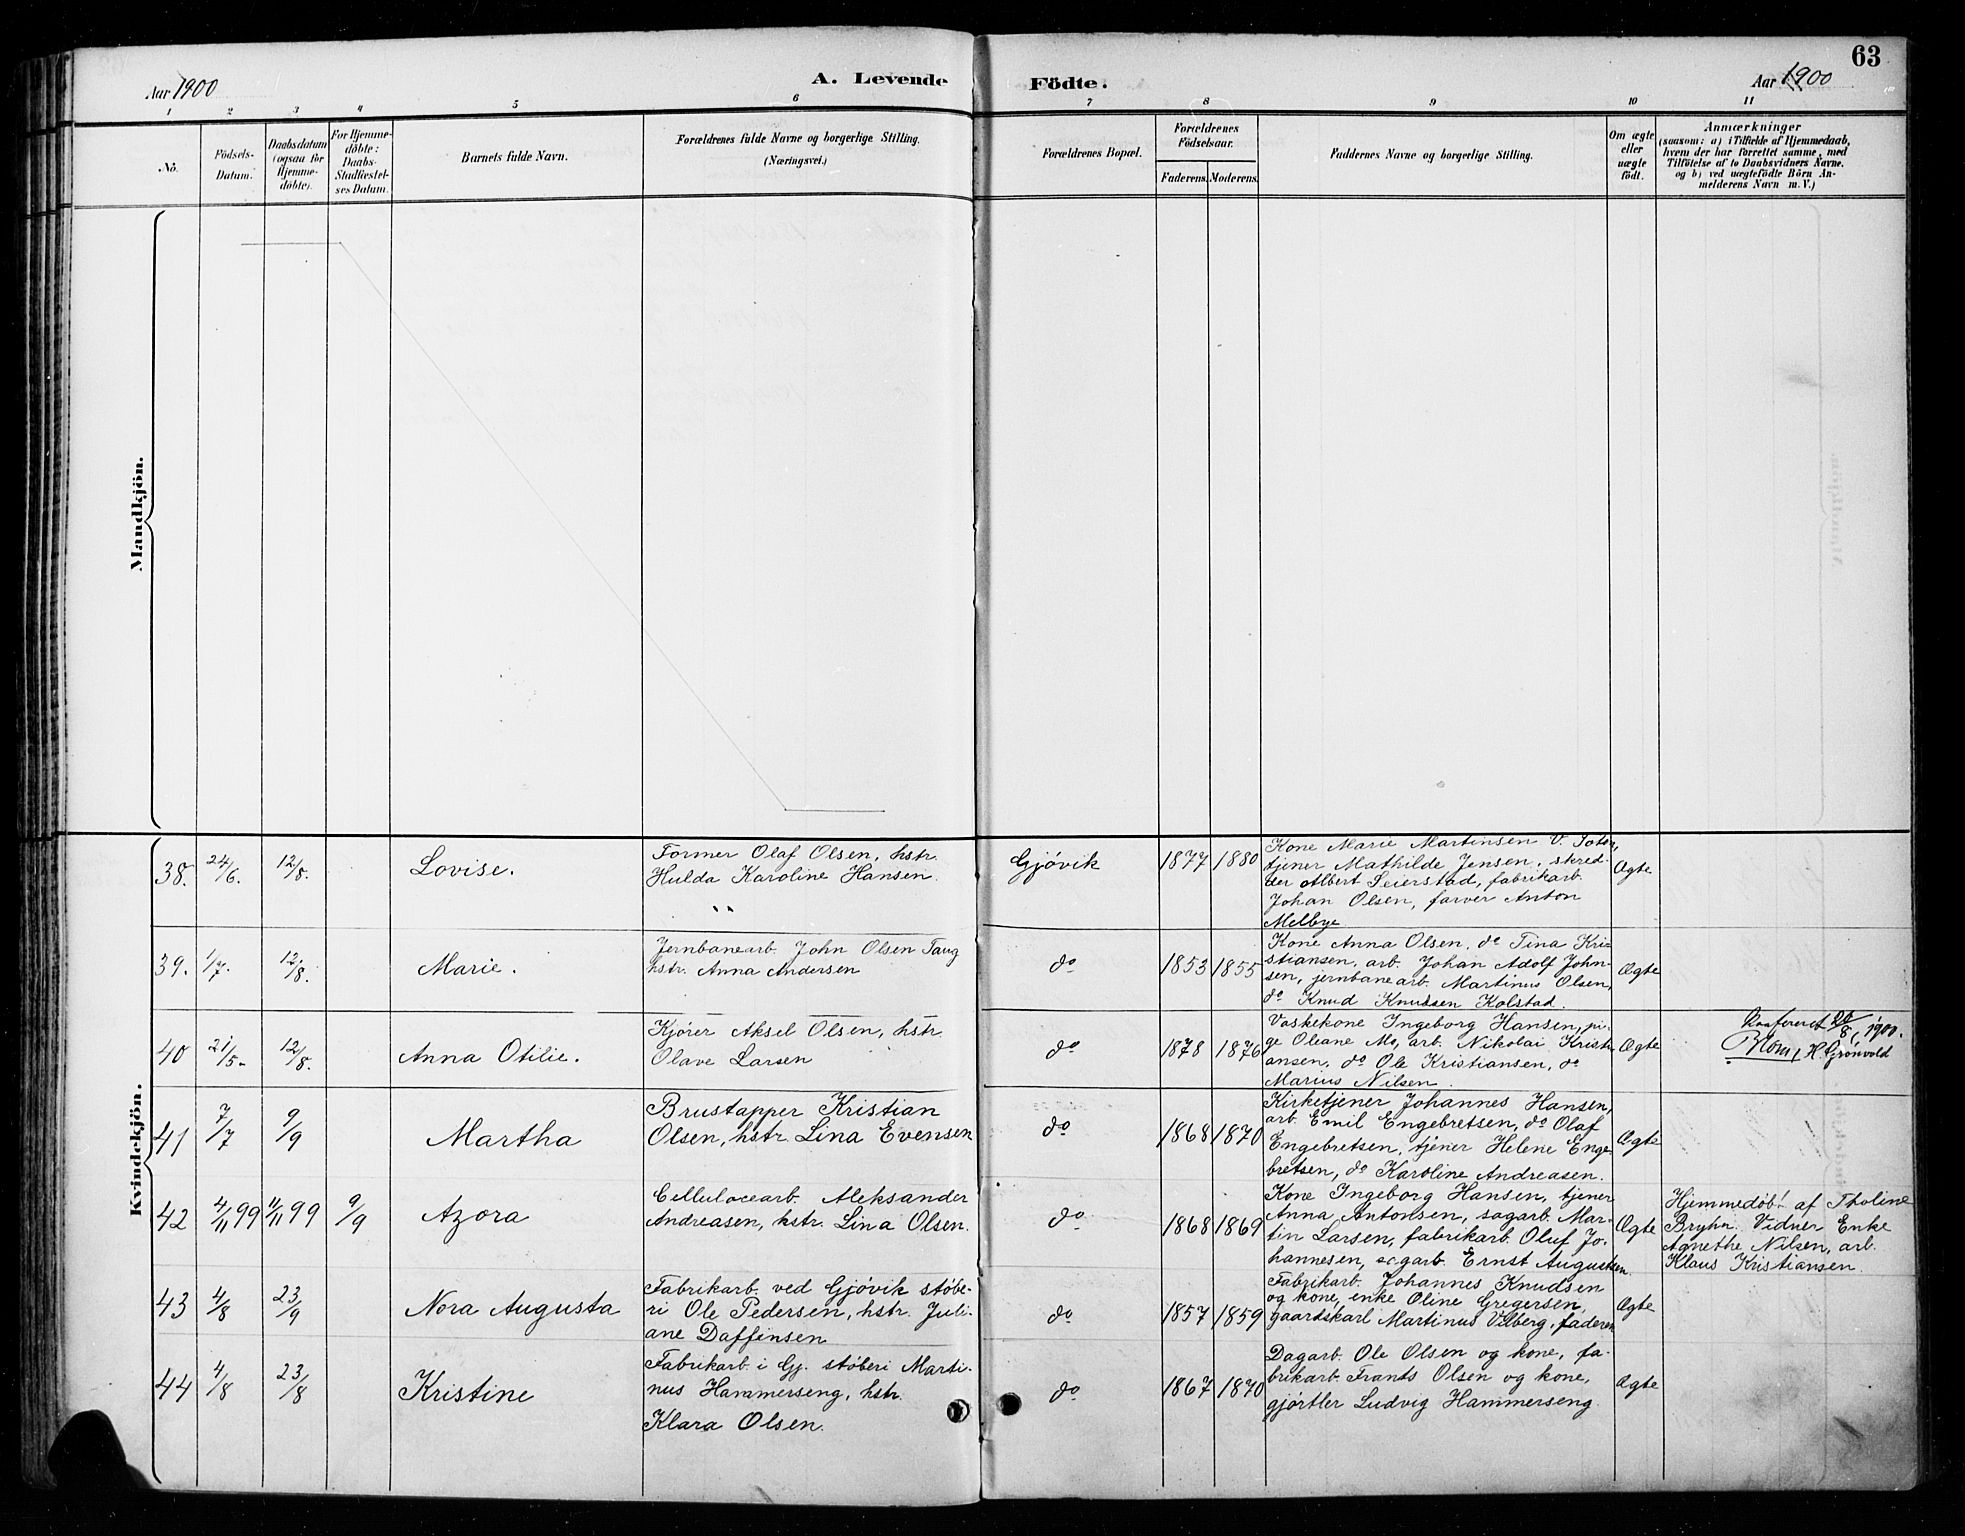 63
Aar 1900
A. Levende
Födte.
Aar 1900
1 2 3 4 5 6 7 8 9 10 11
No.
Födsels-
Datum.
Daabsdatum
(ogsaa for
Hjemme-
döbte).
For Hjemme-
döbte:
Daabs-
Stadfæstel-
ses Datum.
Barnets fulde Navn.
Forældrenes fulde Navne og borgerlige Stilling.
(Næringsvei.)
Forældrenes Bopæl.
Forældrenes
Födselsaar.
Faderens.
Moderens.
Faddernes Navne og borgerlige Stilling.
Om ægte
eller
uægte
födt.
Anmærkninger
(saasom: a) i Tilfælde af Hjemmedaab,
hvem der har forrettet samme, med
Tilföielse af to Daabsvidners Navne,
og b) ved uægtefödte Börn An-
melderens Navn m. V.)
Mandkjön.
Kvindekjön.
38. 24/6. 12/8. Lovise.
Former Olaf Olsen, hstr.
Hulda Karoline Hansen.
Gjövik 1877 1880
Kone Marie Martinsen V. Toten,
tjener Mathilde Jensen, skred-
der Albert Seierstad, fabrikarb.
Johan Olsen, farver Anton
Melbye
Ægte
39. 1/7. 12/8. Marie.
Jernbanearb. John Olsen Taug
hstr. Anna Andersen
do 1853 1855
Kone Anna Olsen, do Tina Kri-
stiansen, arb. Johan Adolf John-
sen, jernbanearb. Martinus Olsen,
do Knud Knudsen Kolstad.
Ægte
40 21/5. 12/8. Anna Otilie.
Kjörer Aksel Olsen, hstr.
Olave Larsen
do 1878 1876
Vaskekone Ingeborg Hansen, pi-
ge Oleane Mo, arb. Nikolai Kristi-
ansen, do Ole Kristiansen, do
Marius Nilsen.
Ægte
Konfereret 20/8, 1900.
Blom, H. Grönvold
41 7/7 9/9 Martha
Brustapper Kristian
Olsen, hstr. Lina Evensen
do 1868 1870
Kirketjener Johannes Hansen,
arb. Emil Engebretsen, do Olaf
Engebretsen, tjener Helene Enge-
bretsen, do Karoline Andreasen.
Ægte
42 4/11 99 4/11 99 9/9 Azora
Cellulocearb. Aleksander
Andreasen, hstr. Lina Olsen.
do 1868 1869
Kone Ingeborg Hansen, tjener
Anna Antonsen, sagarb. Mar-
tin Larsen, fabrikarb. Oluf Jo-
hannesen, sagarb. Ernst Augustsen
Ægte
Hjemmedöbt af Tholine
Bryhn. Vidner Enke
Agnethe Nilsen, arb.
Klaus Kristiansen
43 4/8 23/9 Nora Augusta
Fabrikarb. ved Gjövik støbe-
ri Ole Pedersen, hstr. Juli-
ane Daffinsen
do 1857 1859
Fabrikarb. Johannes Knudsen
og kone, enke Oline Gregersen,
gaardskarl Martinus Vilberg, faderen
Ægte
44 4/8 23/8 Kristine
Fabrikarb. i Gj. støberi Marti-
nus Hammerseng, hstr.
Klara Olsen.
do 1867 1870
Dagarb. Ole Olsen og kone, fa-
brikarb. Frants Olsen og kone,
gjörtler Ludvig Hammerseng.
Ægte